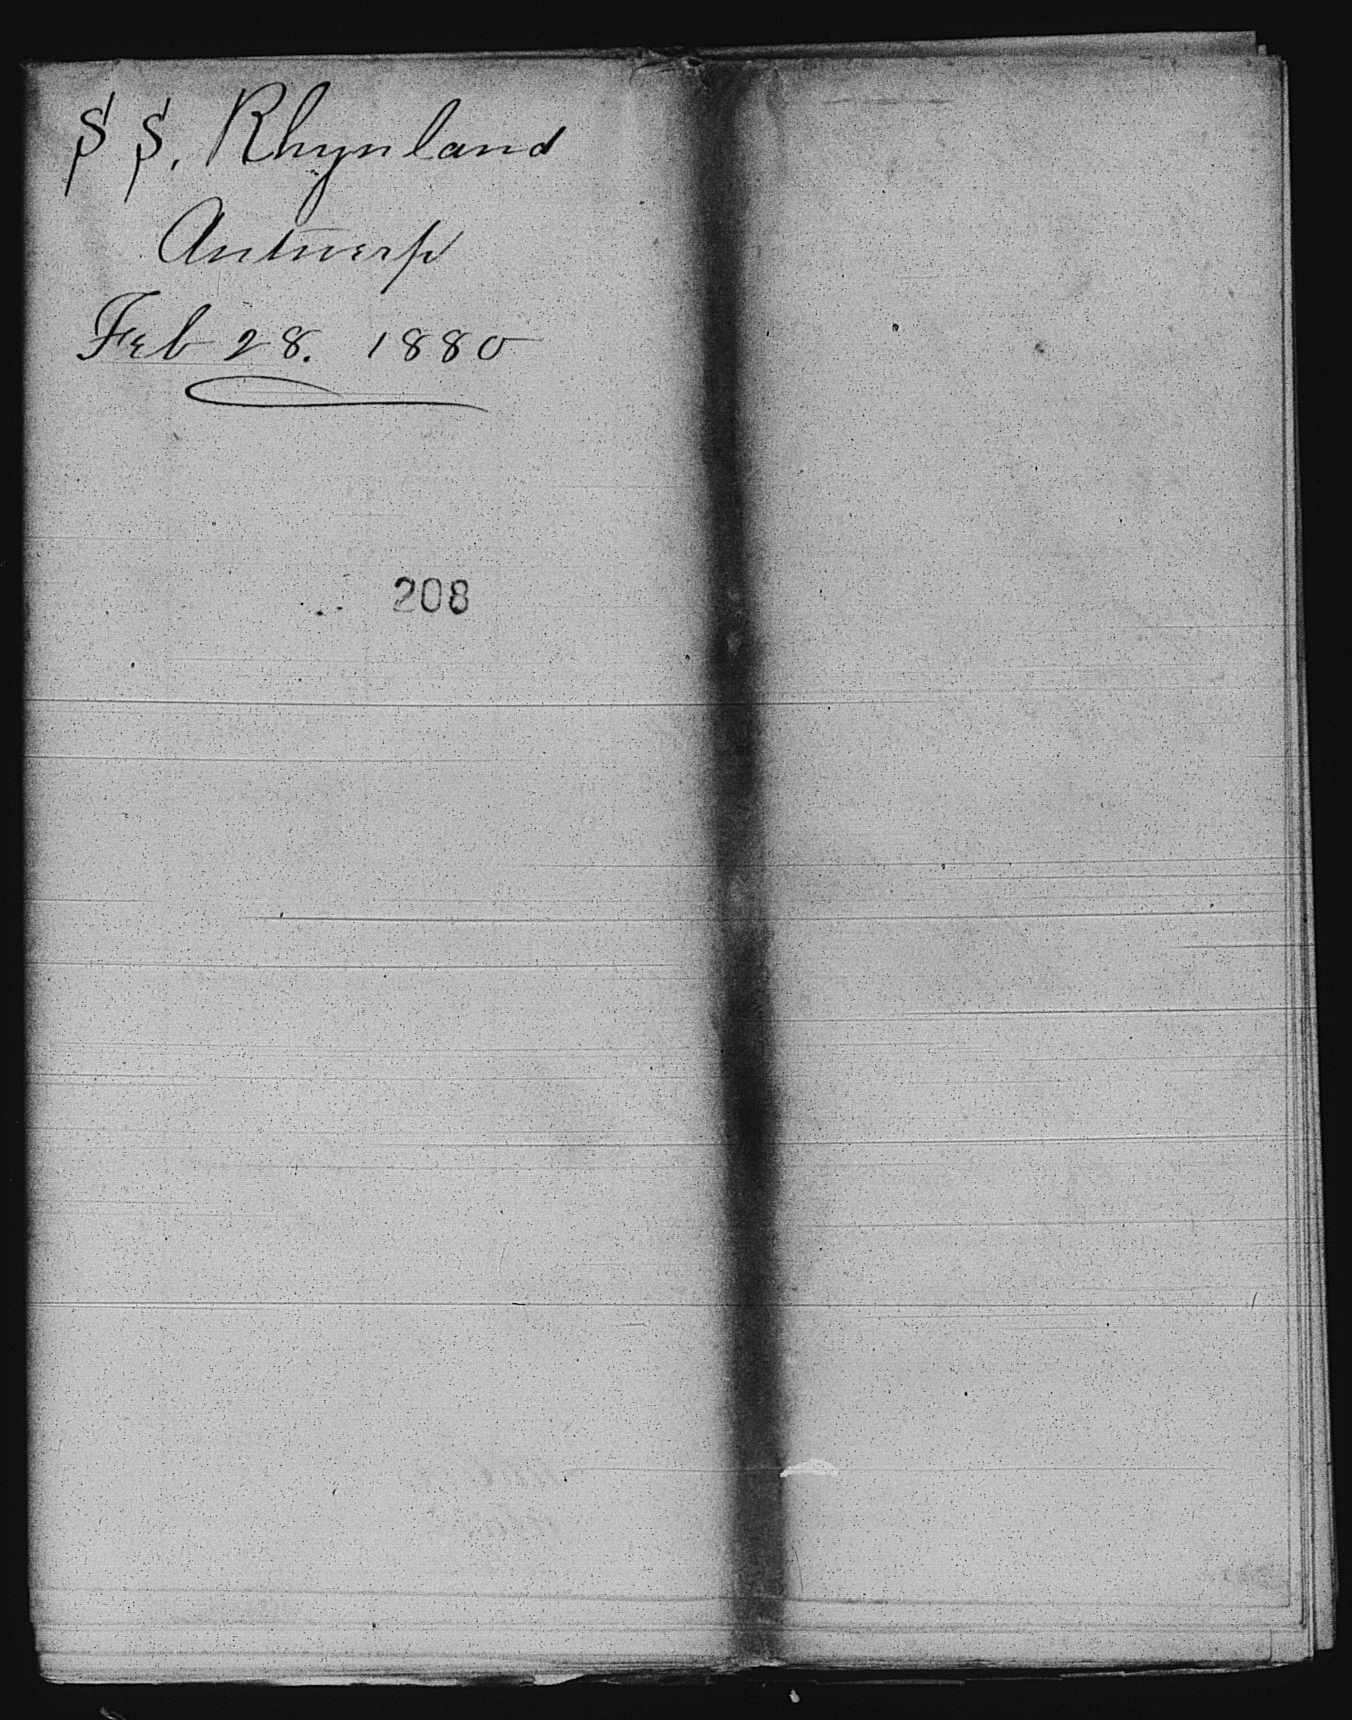 S S. Rhynland
Antwerp
Feb 28. 1880
208